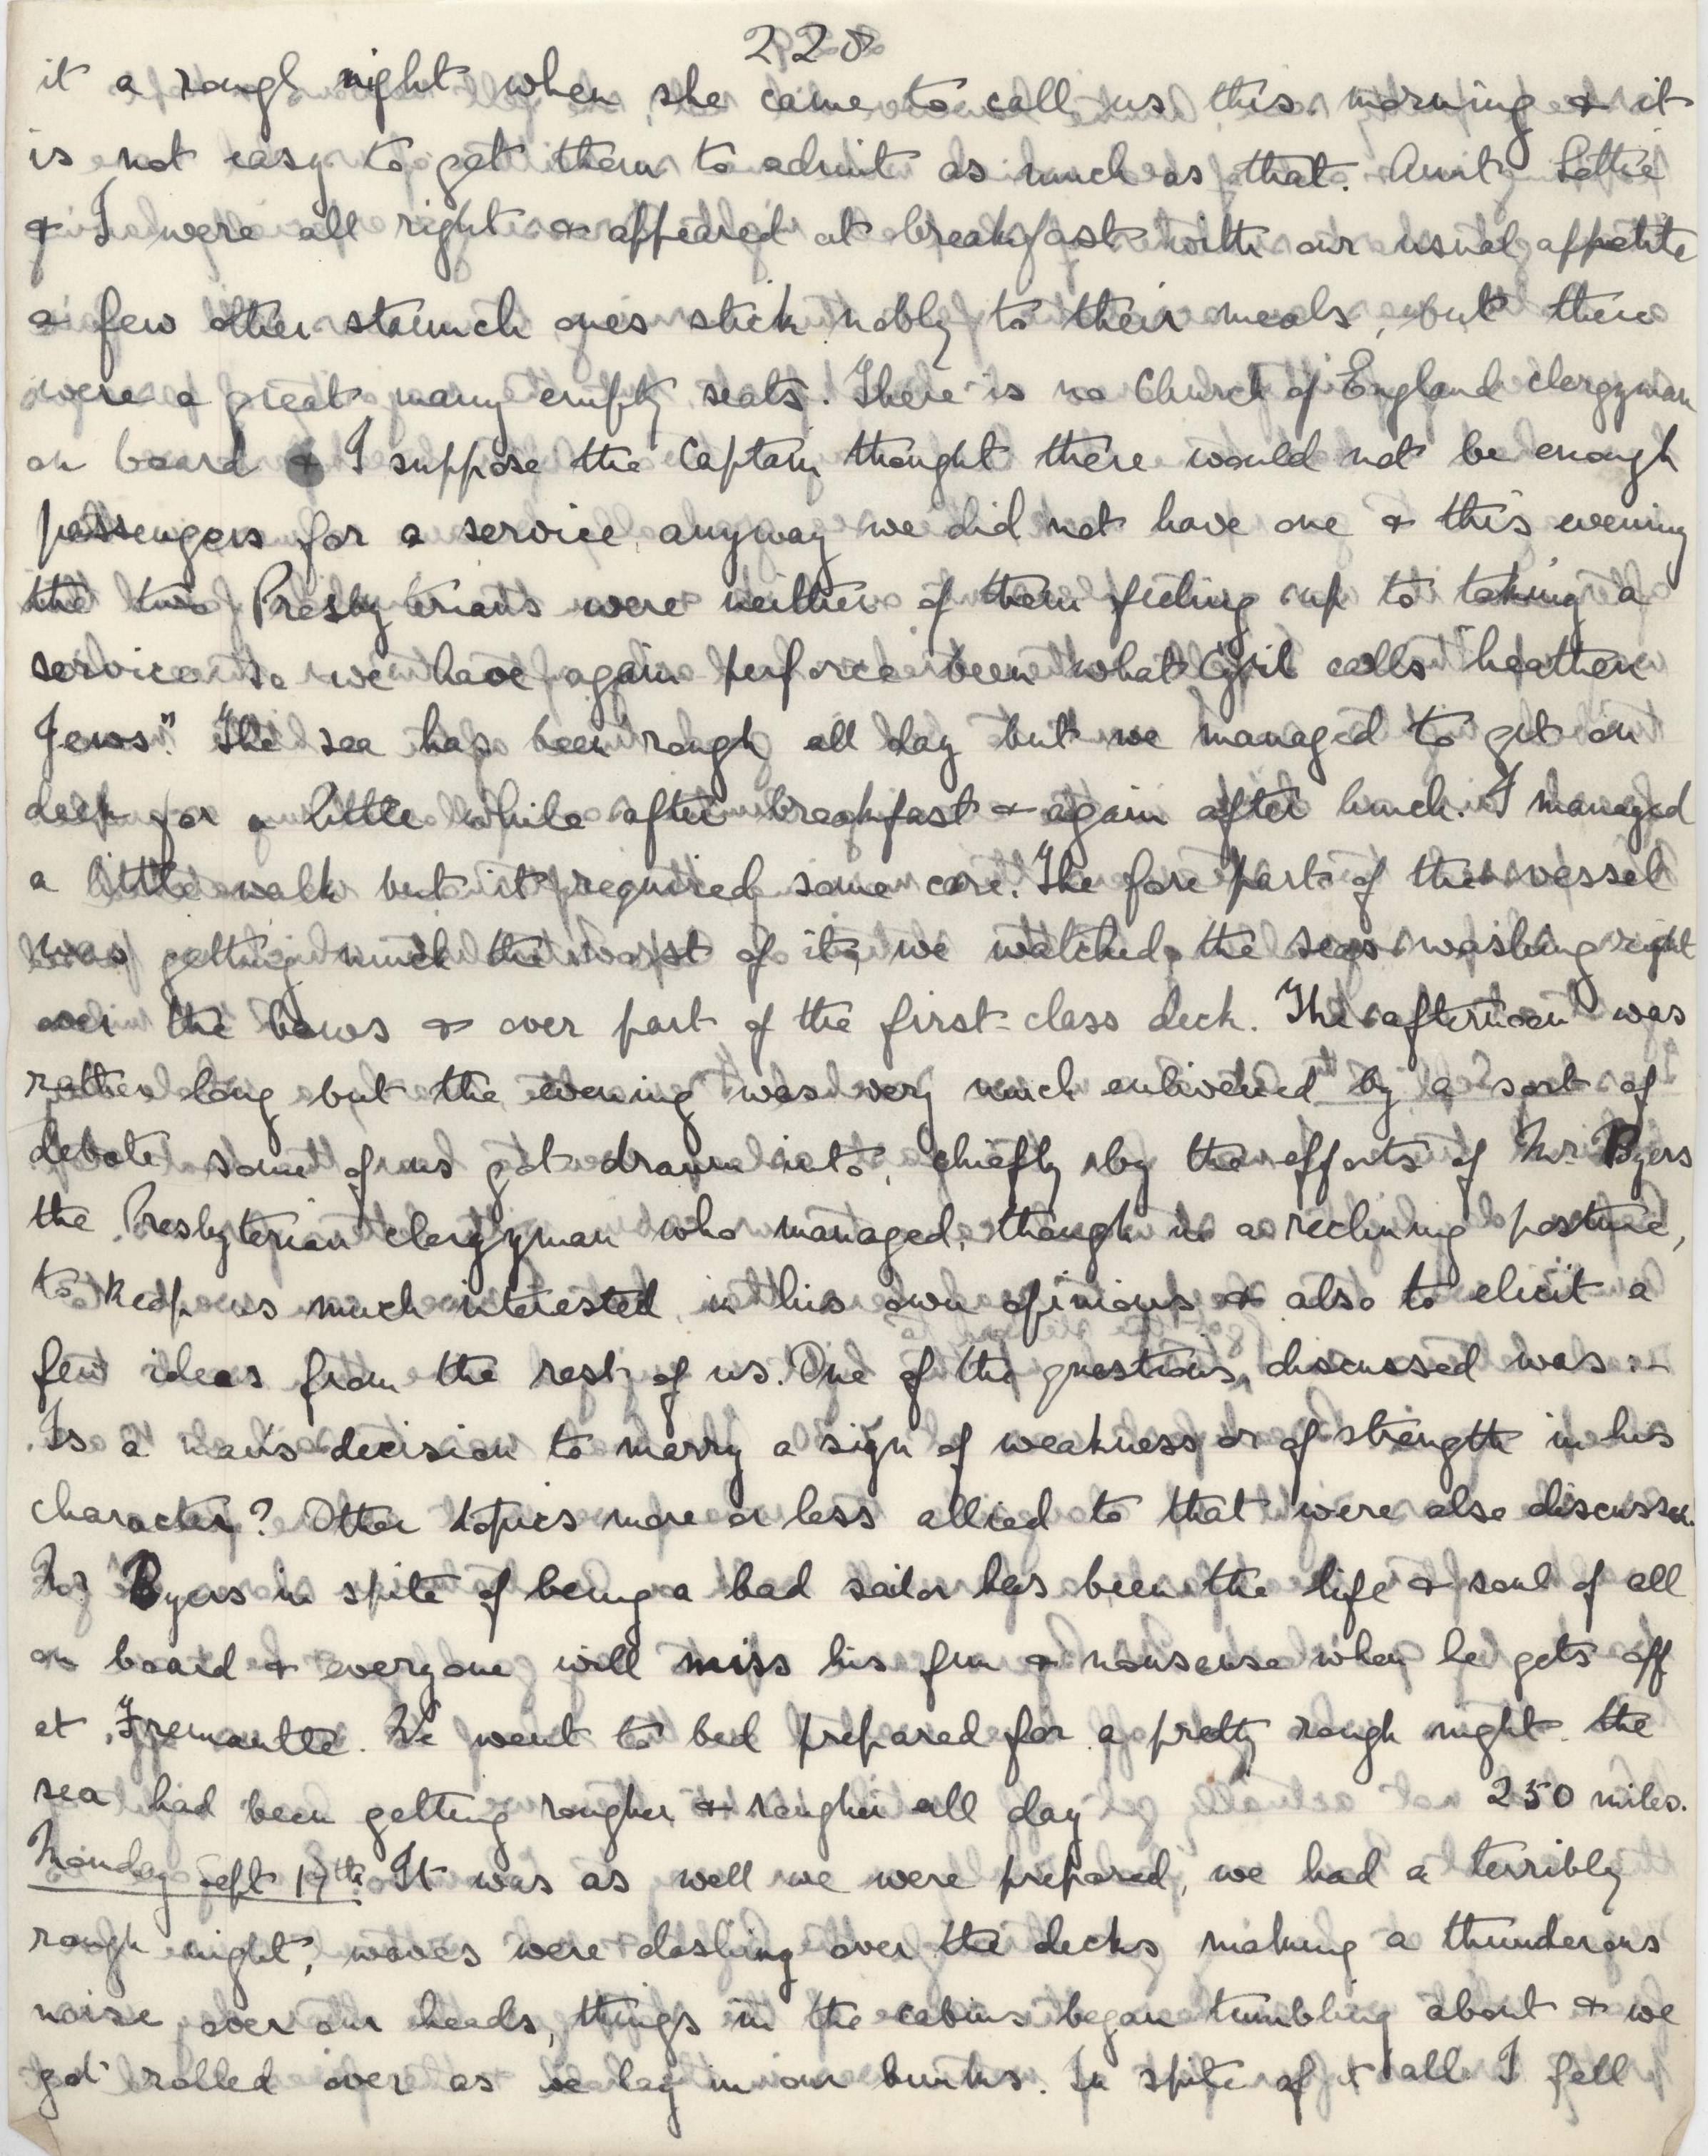 228
it a rough night when she came to call us this morning & it
is not easy to get them to admit as much as that. Aunt Lottie
& I were all right & appeared at breakfast with our usual appetite
a few other staunch ones stick nobly to their meals, but there
were a great many empty seats. There is no Church of England clergyman
on board & I suppose the Captain thought there would not be enough
passengers for a service, anyway we did not have one & this evening
the two Presbyterians were neither of them feeling up to taking a
service so we have again perforce been what Cyril calls "heathen
Jews". The sea has been rough all day but we managed to get on
deck for a little while after breakfast & again after lunch. I managed
a little walk but it required some care. The fore part of the vessel
was getting much the worst of it, we watched the seas washing right
over the bows & over part of the first-class deck. The afternoon was
rather long but the evening was very much enlivened by a sort of
debate some of us got drawn into, chiefly by the efforts of Mr. Byers
the Presbyterian clergyman who managed, though in a reclining posture,
to keep us much interested in his own opinions & also to elicit a
few ideas from the rest of us. One of the questions discussed was :-
Is a man's decision to marry a sign of weakness or of strength in his
character? Other topics more or less allied to that were also discussed.
Mr Byers in spite of being a bad sailor has been the life & soul of all
on board & everyone will miss his fun & nonsense when he gets off
at Fremantle. We went to bed prepared for a pretty rough night the
sea had been getting rougher & rougher all day 250 miles.
Monday Sept 17th. It was as well we were prepared, we had a terribly
rough night, waves were dashing over the decks making a thunderous
noise over our heads, things in the cabins began tumbling about & we
got rolled over as we lay in our bunks. In spite of it all I fell